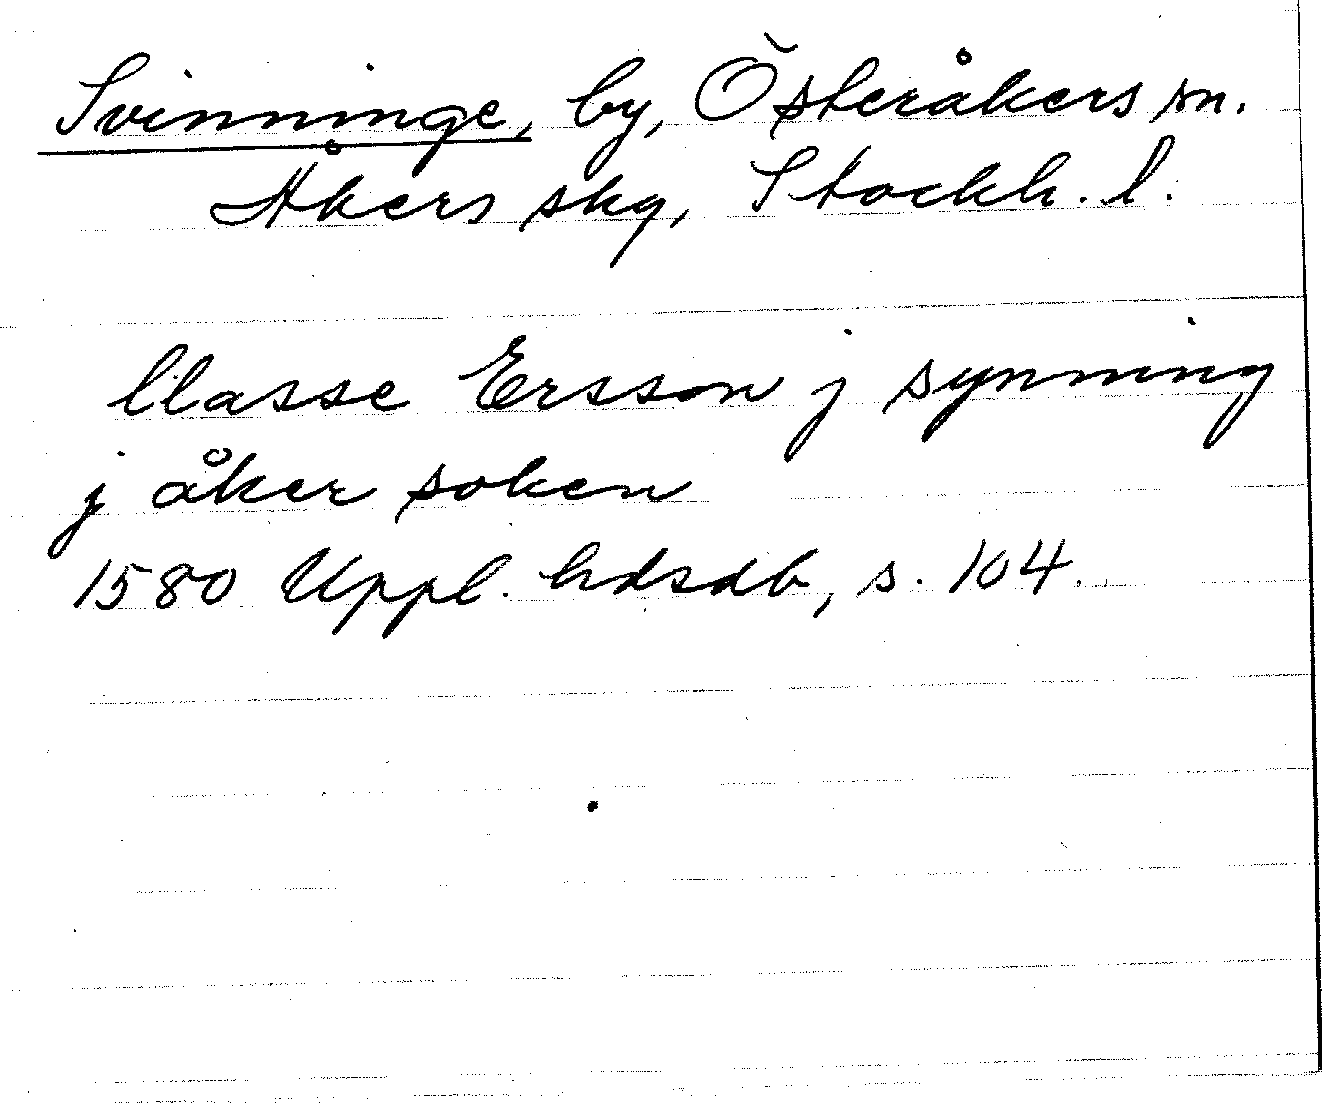 Svinninge, by, Österåkers sn.
Åkers skg, Stockh. l.
llasse Ersson j synning
j åker soken
1580 Uppl. hdsdb, s. 104.